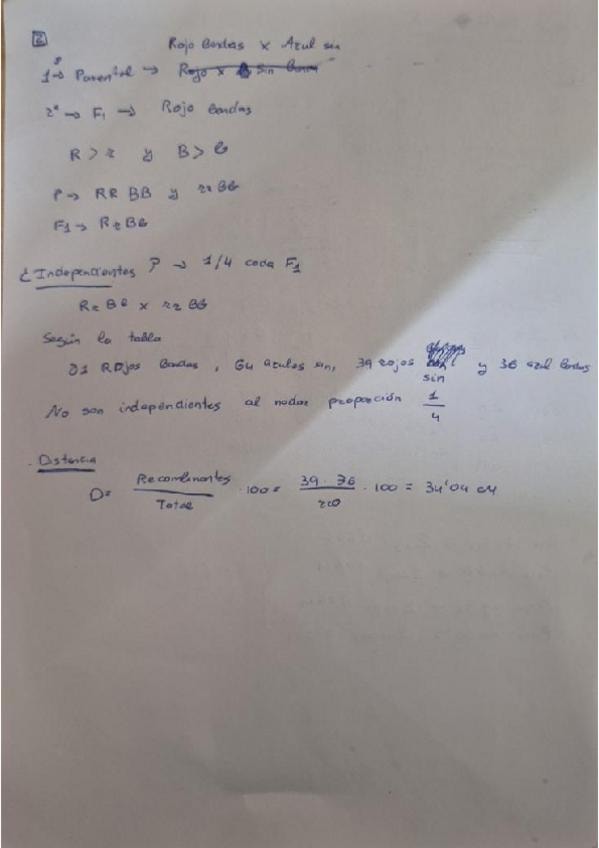 2
Rojo bandas x Azul sin
1º → Parental → Rojo x sin bandas
2º → F1 → Rojo bandas
R > r y B > b
P → RR BB y rr bb
F1 → Rr Bb
¿Independientes? → 1/4 cada F1
Rr Bb x rr bb
Según la tabla
81 Rojos bandas, 64 azules sin, 39 rojos sin y 36 azul bandas
No son independientes al no dar proporción 1/4
Distancia
D= Recombinantes / Total · 100 = 39 · 36 / 220 · 100 = 34'04 cM